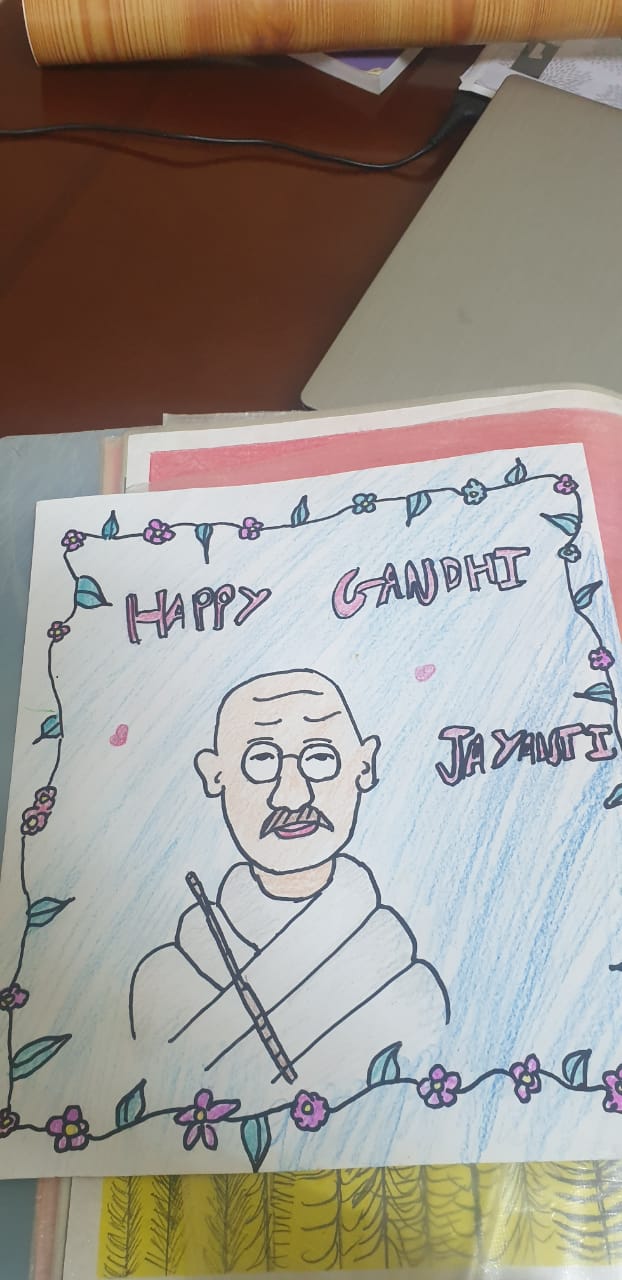 HAPPY GANDHI
JAYANTI